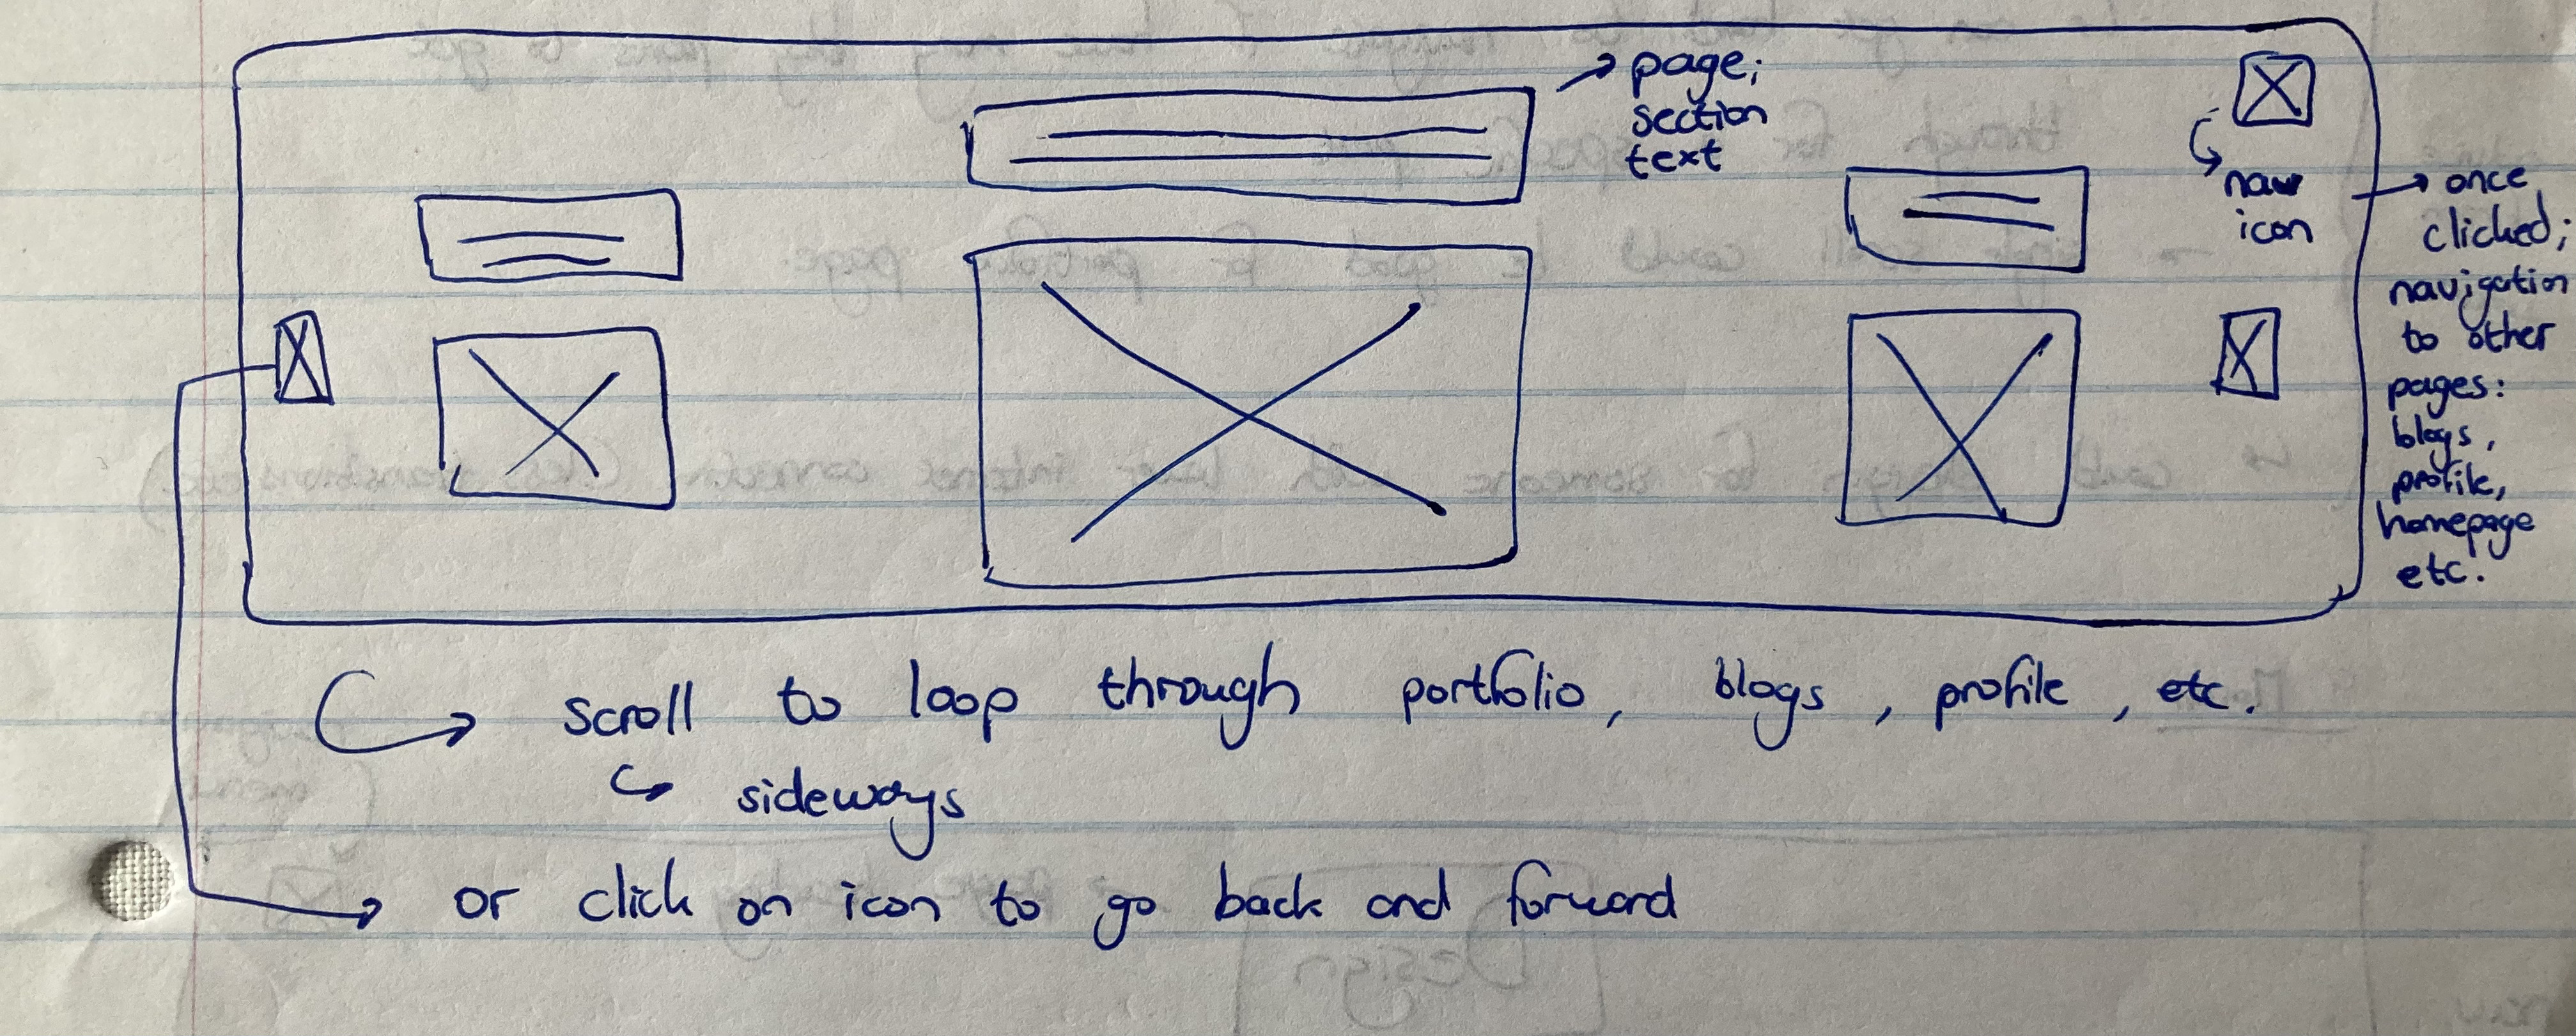 page;
section
text
nav
icon
once
clicked;
navigation
to other
pages:
blogs,
profile,
homepage
etc.
scroll to loop through portfolio, blogs, profile, etc.
sideways
or click on icon to go back and forward
Design